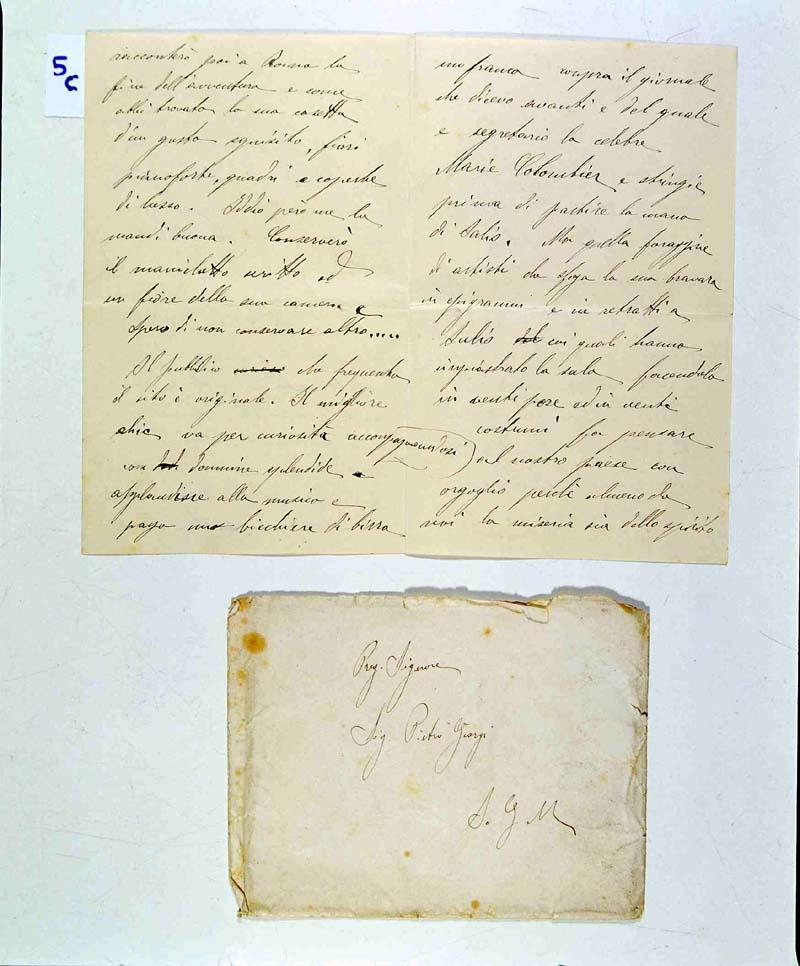 5c
racconterò poi a Roma la
fine dell'avventura e come
abbi trovata la sua casetta
d'un gusto squisito, fiori
pianoforte, quadri e coperte
di lusso. Iddio però me la
mandi buona. Conserverò
il manicotto scritto ed
un fiore della sua camera e
spero di non conservare altro.....
Il pubblico che frequenta
il sito è originale. Il migliore
chic va per curiosità accompagnandosi
con donnine splendide e
applaudisce alla musica e
paga un bicchiere di birra
un franco compra il giornale
che dicevo avanti e del quale
è segretario la celebre
Marie Colombier e stringe
prima di partire la mano
di Salis. Ma quella
di artisti che sfoga la sua bravura
in epigrammi e in ritratti a
Salis coi quali hanno
impiastrato la sala facendolo
in venti pose ed in venti
costumi fa pensare
al nostro paese con
orgoglio perché almeno da
noi la miseria sia dello spirito
Preg. Signore
Sig. Pietro Giorgi
S. G. M.